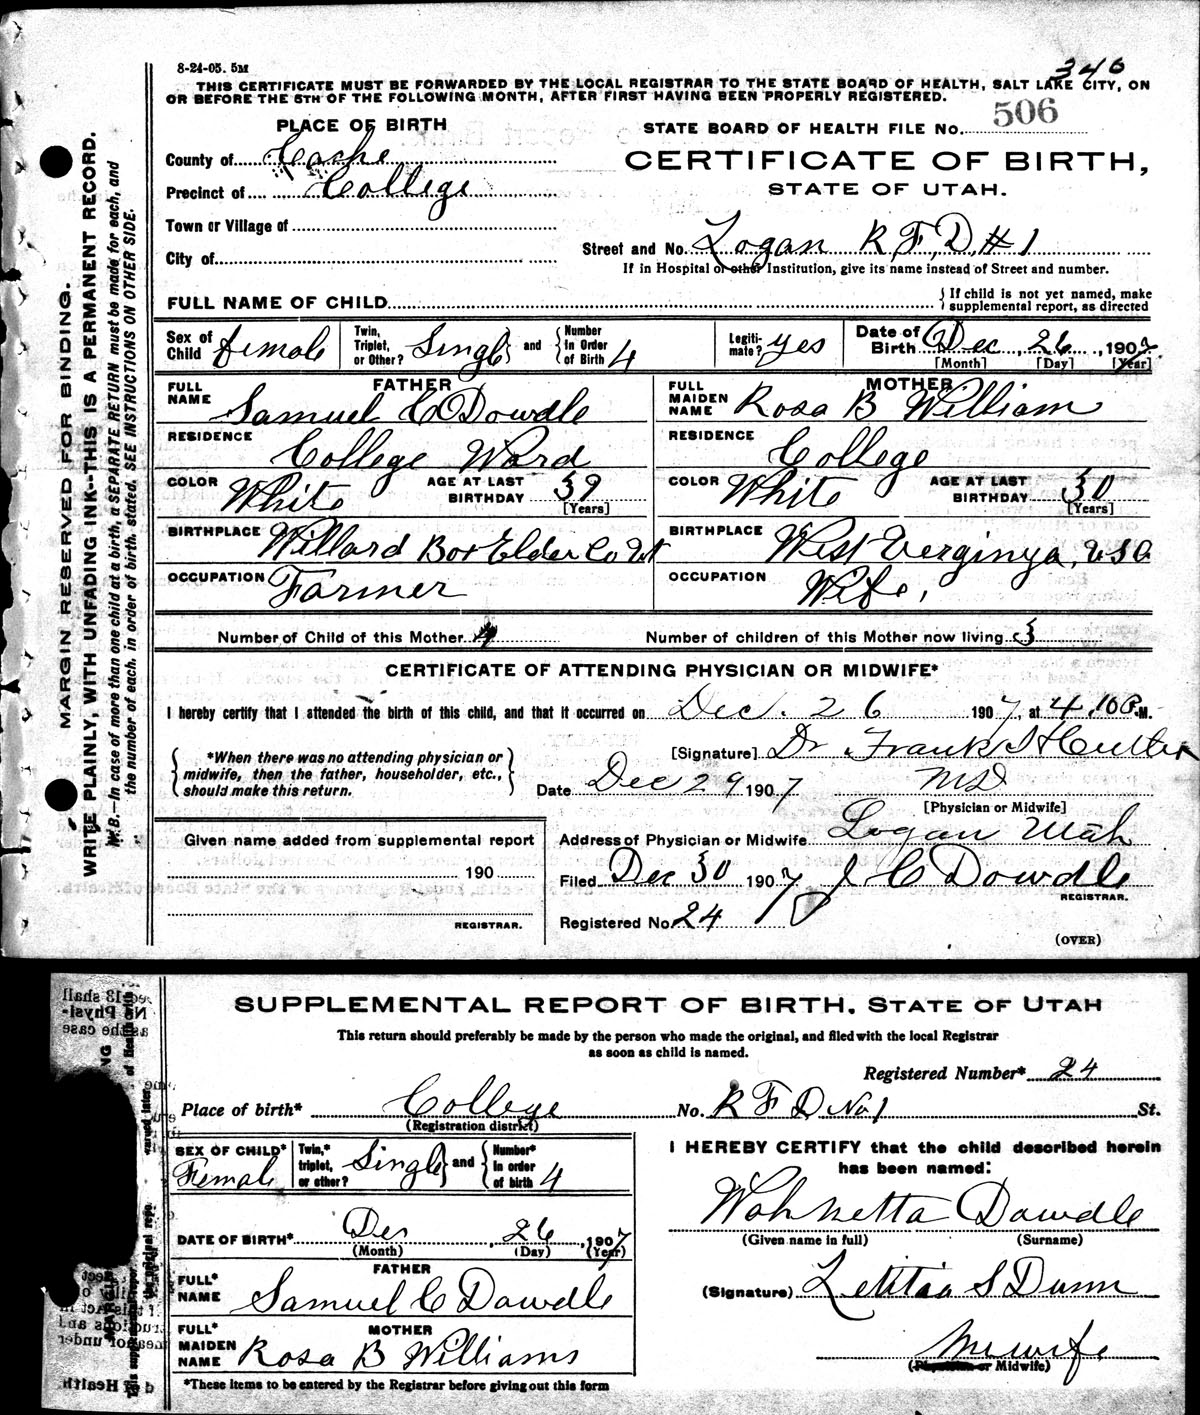 8-24-05. 5M
346
THIS CERTIFICATE MUST BE FORWARDED BY THE LOCAL REGISTRAR TO THE STATE BOARD OF HEALTH, SALT LAKE CITY, ON
OR BEFORE THE 5TH OF THE FOLLOWING MONTH, AFTER FIRST HAVING BEEN PROPERLY REGISTERED.
MARGIN RESERVED FOR BINDING.
WRITE PLAINLY, WITH UNFADING INK--THIS IS A PERMANENT RECORD.
N.B.—In case of more than one child at a birth, a SEPARATE RETURN must be made for each, and
the number of each, in order of birth, stated. SEE INSTRUCTIONS ON OTHER SIDE.
PLACE OF BIRTH
STATE BOARD OF HEALTH FILE No. 506
County of Cache
CERTIFICATE OF BIRTH,
Precinct of College
STATE OF UTAH.
Town or Village of
Street and No. Logan R F D # 1
City of
If in Hospital or other Institution, give its name instead of Street and number.
FULL NAME OF CHILD { If child is not yet named, make supplemental report, as directed
Sex of Child female Twin, Triplet, or Other? Single and Number in Order of Birth 4 Legitimate? yes Date of Birth Dec 26, 1907
[Month] [Day] [Year]
FATHER MOTHER
FULL NAME Samuel C Dowdle FULL MAIDEN NAME Rosa B William
RESIDENCE College Ward RESIDENCE College
COLOR White AGE AT LAST BIRTHDAY 39 [Years] COLOR White AGE AT LAST BIRTHDAY 30 [Years]
BIRTHPLACE Willard Box Elder Co Ut BIRTHPLACE West Verginya, USA
OCCUPATION Farmer OCCUPATION Wife,
Number of Child of this Mother 4 Number of children of this Mother now living 3
CERTIFICATE OF ATTENDING PHYSICIAN OR MIDWIFE*
I hereby certify that I attended the birth of this child, and that it occurred on Dec. 26 1907, at 4.10 P.M.
*When there was no attending physician or midwife, then the father, householder, etc., should make this return.
[Signature] Dr. Frank
Date Dec 29 1907 MD
[Physician or Midwife]
Given name added from supplemental report
Address of Physician or Midwife Logan Utah
190
Filed Dec 30 1907 J C Dowdle
REGISTRAR.
REGISTRAR.
Registered No. 24
(OVER)
SUPPLEMENTAL REPORT OF BIRTH, STATE OF UTAH
This return should preferably be made by the person who made the original, and filed with the local Registrar
as soon as child is named.
Registered Number* 24
Place of birth* College No. R F D No. 1 St.
(Registration district)
SEX OF CHILD* Female Twin,* triplet, or other? Single and Number* in order of birth 4
I HEREBY CERTIFY that the child described herein
has been named:
DATE OF BIRTH* Dec 26, 1907
(Month) (Day) (Year)
Wahnetta Dowdle
(Given name in full) (Surname)
FATHER
FULL* NAME Samuel C Dowdle
(Signature) Letitia S Dunn
MOTHER
FULL* MAIDEN NAME Rosa B Williams
Midwife
(Physician or Midwife)
*These items to be entered by the Registrar before giving out this form